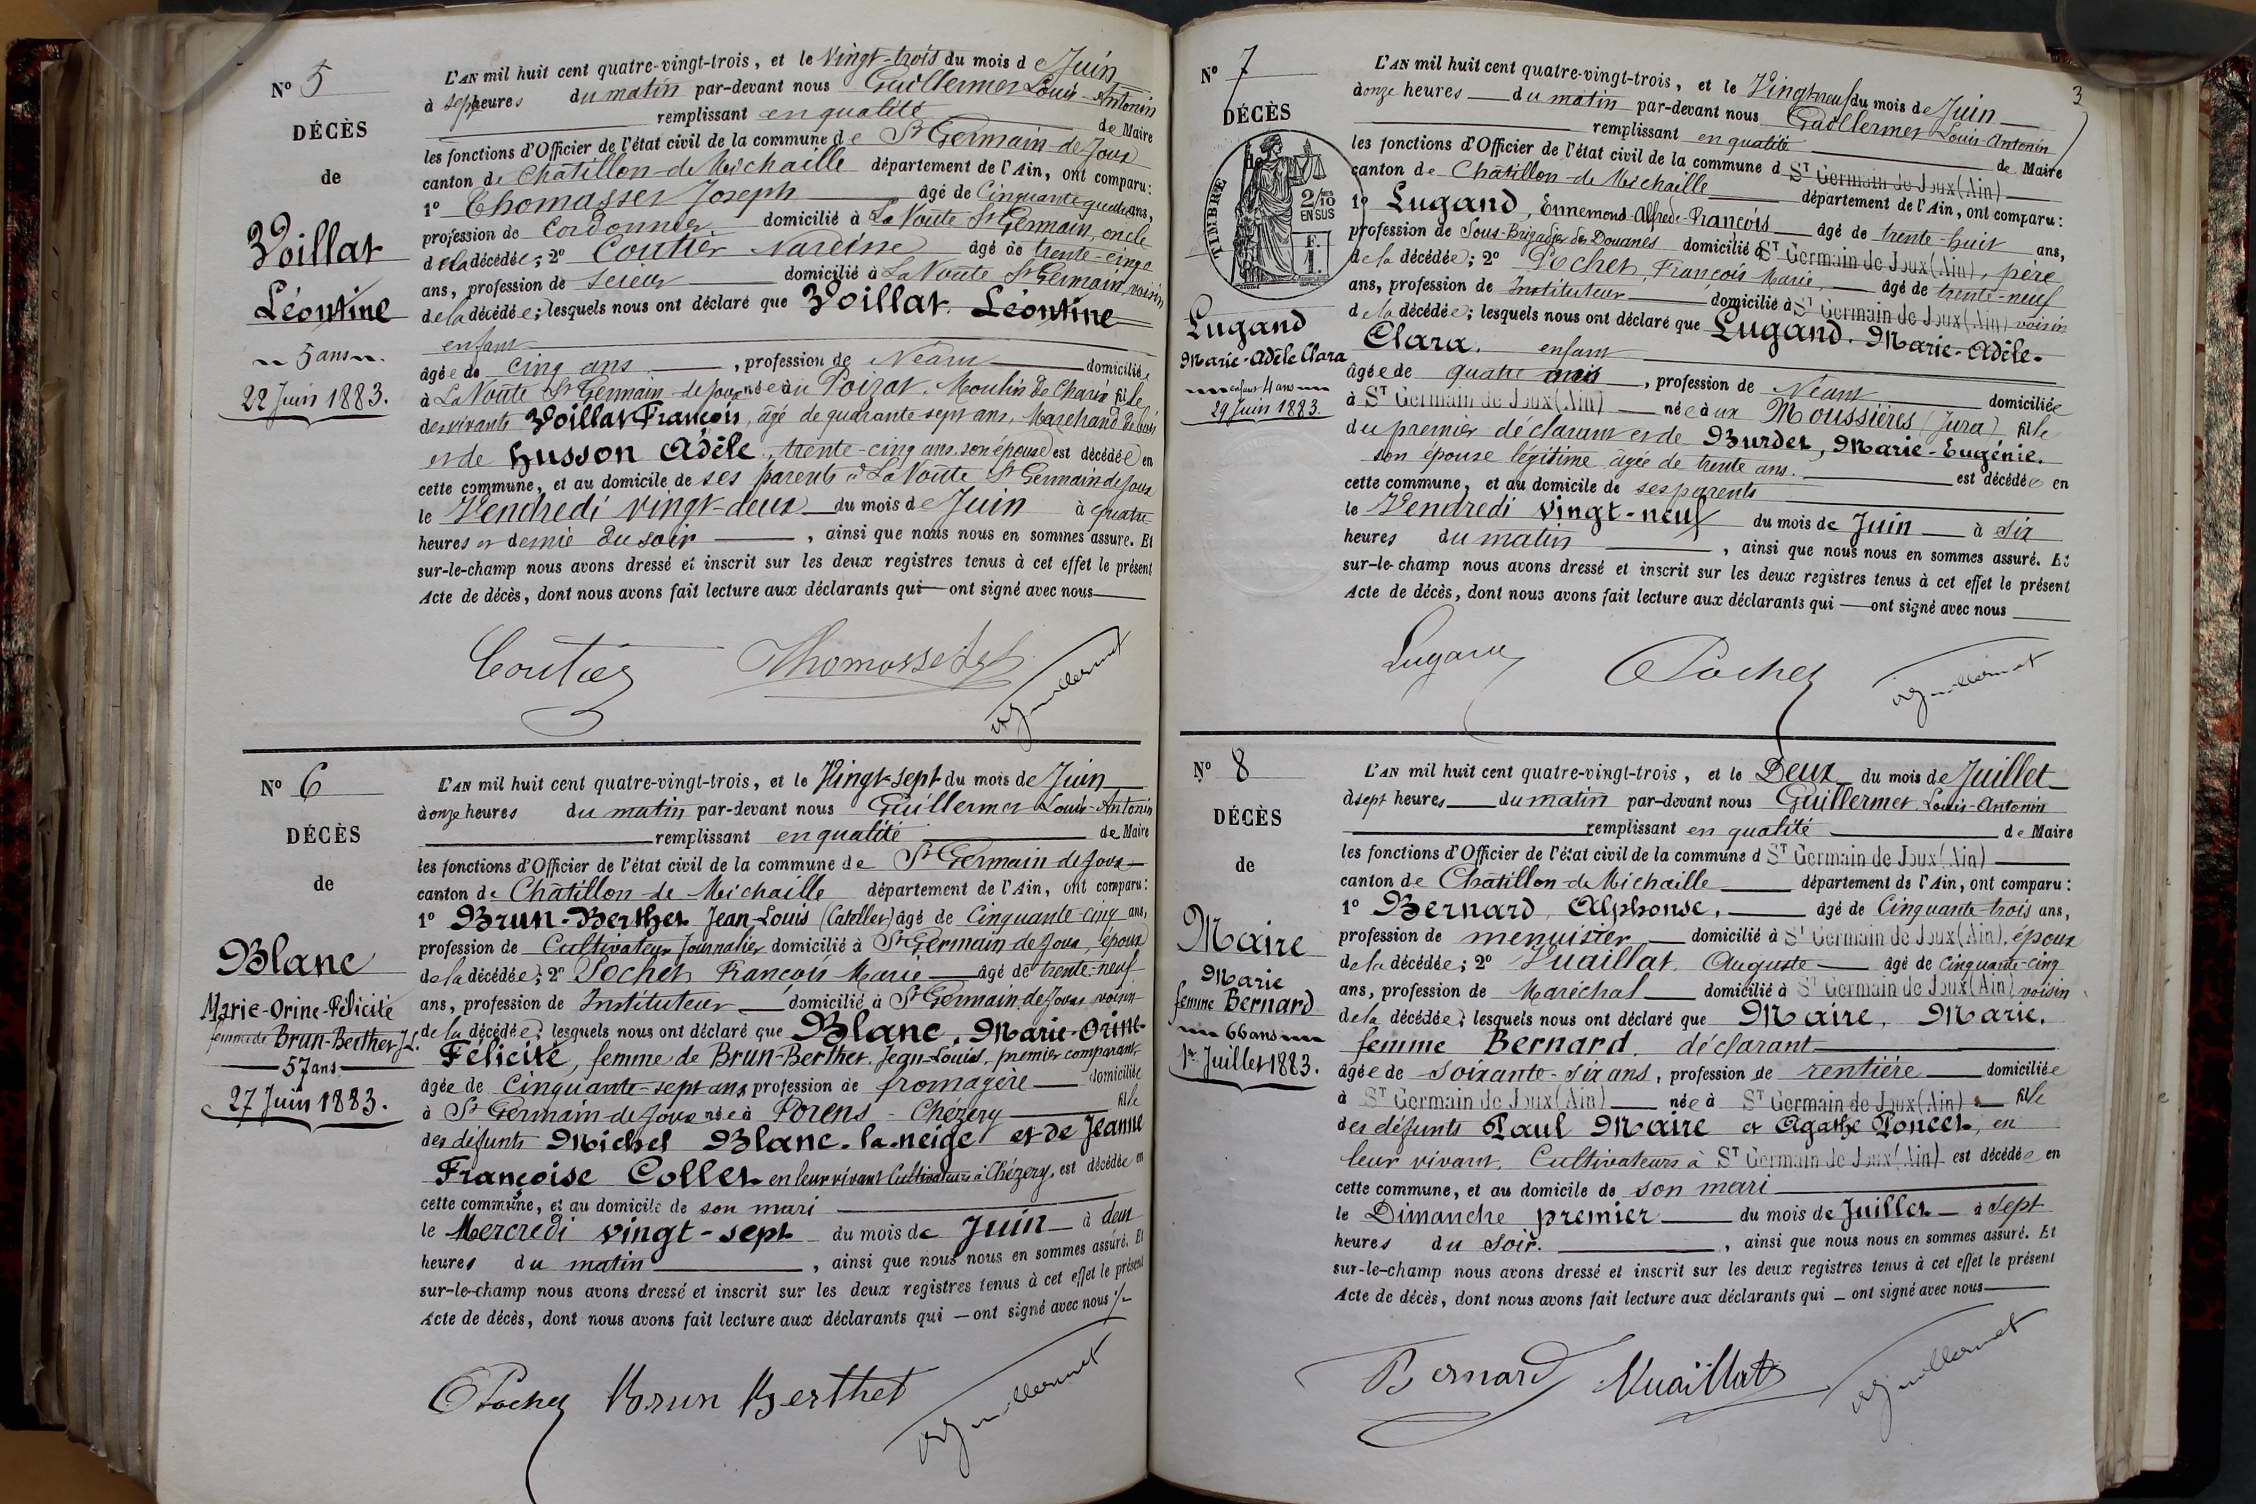 Nº 5
DÉCÈS
de
Voillat
Léontine
5 ans
22 Juin 1883.
L'AN mil huit cent quatre-vingt-trois, et le Vingt-trois du mois de Juin
à sept heures du matin par-devant nous Guillermet Louis-Antonin
remplissant en qualité de Maire
les fonctions d'Officier de l'état civil de la commune de St Germain-de-Joux
canton de Châtillon-de-Michaille département de l'Ain, ont comparu:
1º Thomasset Joseph âgé de Cinquante quatre ans,
profession de Cordonnier domicilié à La Voûte St Germain, oncle
de la décédée; 2º Coutier Narcisse âgé de trente-cinq
ans, profession de Scieur domicilié à La Voûte St Germain, voisin
de la décédée; lesquels nous ont déclaré que Voillat Léontine
enfant
âgée de cinq ans, profession de Néant domiciliée
à La Voûte St Germain-de-Joux née au Poizat, Moulin de Charix fille
des vivants Voillat François, âgé de quarante-sept ans, Marchand de bois
et de Husson Adèle, trente-cinq ans, son épouse est décédée en
cette commune, et au domicile de ses parents à La Voûte St Germain de Joux
le Vendredi vingt-deux du mois de Juin à quatre
heures et demie du soir, ainsi que nous nous en sommes assuré. Et
sur-le-champ nous avons dressé et inscrit sur les deux registres tenus à cet effet le présent
Acte de décès, dont nous avons fait lecture aux déclarants qui ont signé avec nous
Coutier Thomasset Jph Guillermet
Nº 6
DÉCÈS
de
Blanc
Marie-Orine-Félicité
femme de Brun-Berthet J.L.
57 ans
27 Juin 1883.
L'AN mil huit cent quatre-vingt-trois, et le Vingt-sept du mois de Juin
à onze heures du matin par-devant nous Guillermet Louis-Antonin
remplissant en qualité de Maire
les fonctions d'Officier de l'état civil de la commune de St Germain de Joux
canton de Châtillon-de-Michaille département de l'Ain, ont comparu:
1º Brun-Berthet Jean-Louis (Catellet) âgé de Cinquante-cinq ans,
profession de Cultivateur Journalier domicilié à St Germain de Joux, époux
de la décédée; 2º Pochet François Marie âgé de trente-neuf
ans, profession de Instituteur domicilié à St Germain de Joux voisin
de la décédée; lesquels nous ont déclaré que Blanc, Marie-Orine-
Félicité, femme de Brun-Berthet Jean-Louis, premier comparant
âgée de Cinquante-sept ans profession de fromagère domiciliée
à St Germain de Joux née à Forens - Chézery fille
des défunts Michel Blanc-la-neige et de Jeanne
Françoise Collet en leur vivant Cultivateurs à Chézery, est décédée en
cette commune, et au domicile de son mari
le Mercredi vingt-sept du mois de Juin à deux
heures du matin, ainsi que nous nous en sommes assuré. Et
sur-le-champ nous avons dressé et inscrit sur les deux registres tenus à cet effet le présent
Acte de décès, dont nous avons fait lecture aux déclarants qui ont signé avec nous
Pochet Brun Berthet Guillermet
3
Nº 7
DÉCÈS
de
TIMBRE
2/10 EN SUS
F. 1.
Lugand
Marie-Adèle Clara
enfant 4 ans
29 Juin 1883.
L'AN mil huit cent quatre-vingt-trois, et le Vingt-neuf du mois de Juin
à onze heures du matin par-devant nous Guillermet Louis-Antonin
remplissant en qualité de Maire
les fonctions d'Officier de l'état civil de la commune d ST Germain de Joux (Ain)
canton de Châtillon-de-Michaille département de l'Ain, ont comparu:
1º Lugand, Ennemond-Alfred-François âgé de trente-huit ans,
profession de Sous-Brigadier des Douanes domicilié à ST Germain de Joux (Ain), père
de la décédée; 2º Pochet, François Marie, âgé de trente-neuf
ans, profession de Instituteur domicilié à ST Germain de Joux (Ain) voisin
de la décédée; lesquels nous ont déclaré que Lugand, Marie-Adèle-
Clara. enfant
âgée de quatre ans, profession de Néant domiciliée
à ST Germain de Joux (Ain) née à ux Moussières (Jura) fille
du premier déclarant et de Burdet, Marie-Eugénie.
son épouse légitime âgée de trente ans. est décédée en
cette commune, et au domicile de ses parents
le Vendredi vingt-neuf du mois de Juin à six
heures du matin, ainsi que nous nous en sommes assuré. Et
sur-le-champ nous avons dressé et inscrit sur les deux registres tenus à cet effet le présent
Acte de décès, dont nous avons fait lecture aux déclarants qui ont signé avec nous
Lugand Pochet Guillermet
Nº 8
DÉCÈS
de
Maire
Marie
femme Bernard
66 ans
1er Juillet 1883.
L'AN mil huit cent quatre-vingt-trois, et le Deux du mois de Juillet
à sept heures du matin par-devant nous Guillermet Louis-Antonin
remplissant en qualité de Maire
les fonctions d'Officier de l'état civil de la commune d ST Germain de Joux (Ain)
canton de Châtillon-de-Michaille département de l'Ain, ont comparu:
1º Bernard Alphonse, âgé de Cinquante-trois ans,
profession de menuisier domicilié à ST Germain de Joux (Ain), époux
de la décédée; 2º Vuaillat Auguste âgé de cinquante-cinq
ans, profession de Maréchal domicilié à ST Germain de Joux (Ain) voisin
de la décédée; lesquels nous ont déclaré que Maire, Marie,
femme Bernard, déclarant
âgée de soixante-six ans, profession de rentière domiciliée
à ST Germain de Joux (Ain) née à ST Germain de Joux (Ain) fille
des défunts Paul Maire et Agathe Poncet, en
leur vivant, Cultivateurs à ST Germain de Joux (Ain) est décédée en
cette commune, et au domicile de son mari
le Dimanche premier du mois de Juillet à sept
heures du soir., ainsi que nous nous en sommes assuré. Et
sur-le-champ nous avons dressé et inscrit sur les deux registres tenus à cet effet le présent
Acte de décès, dont nous avons fait lecture aux déclarants qui ont signé avec nous
Bernard Vuaillat Guillermet